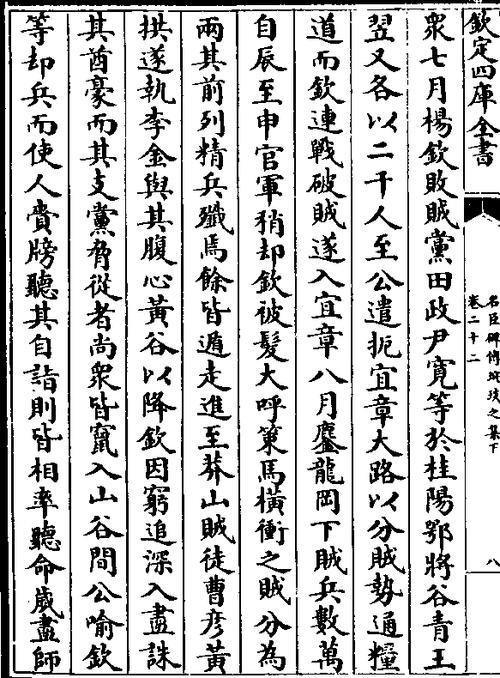 欽定四庫全書
名臣碑傳琬琰之集下
卷二十二
八
衆七月楊欽敗賊黨田政尹寛等於桂陽鄂將谷青王
翌又各以二千人至公遣扼宜章大路以分賊勢通糧
道而欽連戰破賊遂入宜章八月鏖龍岡下賊兵數萬
自辰至申官軍稍却欽被髮大呼策馬横衝之賊分為
兩其前列精兵殲焉餘皆遁走進至莽山賊徒曹彦黄
拱遂執李金與其腹心黄谷以降欽因窮追深入盡誅
其酋豪而其支黨脅從者尚衆皆竄入山谷間公喻欽
等却兵而使人賫牓聽其自詣則皆相率聽命歲盡師